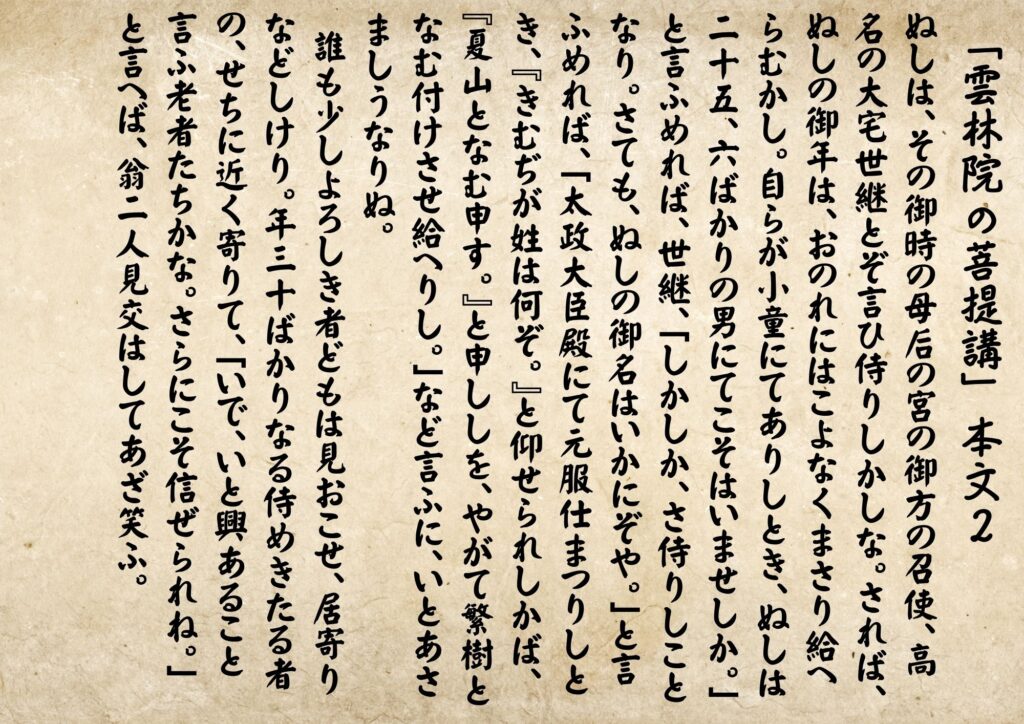 「雲林院の菩提講」本文２
ぬしは、その御時の母后の宮の御方の召使、高
名の大宅世継とぞ言ひ侍りしかしな。されば、
ぬしの御年は、おのれにはこよなくまさり給へ
らむかし。自らが小童にてありしとき、ぬしは
二十五、六ばかりの男にてこそはいませしか。」
と言ふめれば、世継、「しかしか、さ侍りしこと
なり。さても、ぬしの御名はいかにぞや。」と言
ふめれば、「太政大臣殿にて元服仕まつりしと
き、『きむぢが姓は何ぞ。』と仰せられしかば、
『夏山となむ申す。』と申ししを、やがて繁樹と
なむ付けさせ給へりし。」など言ふに、いとあさ
ましうなりぬ。
誰も少しよろしき者どもは見おこせ、居寄り
などしけり。年三十ばかりなる侍めきたる者
の、せちに近く寄りて、「いで、いと興あること
言ふ老者たちかな。さらにこそ信ぜられね。」
と言へば、翁二人見交はしてあざ笑ふ。